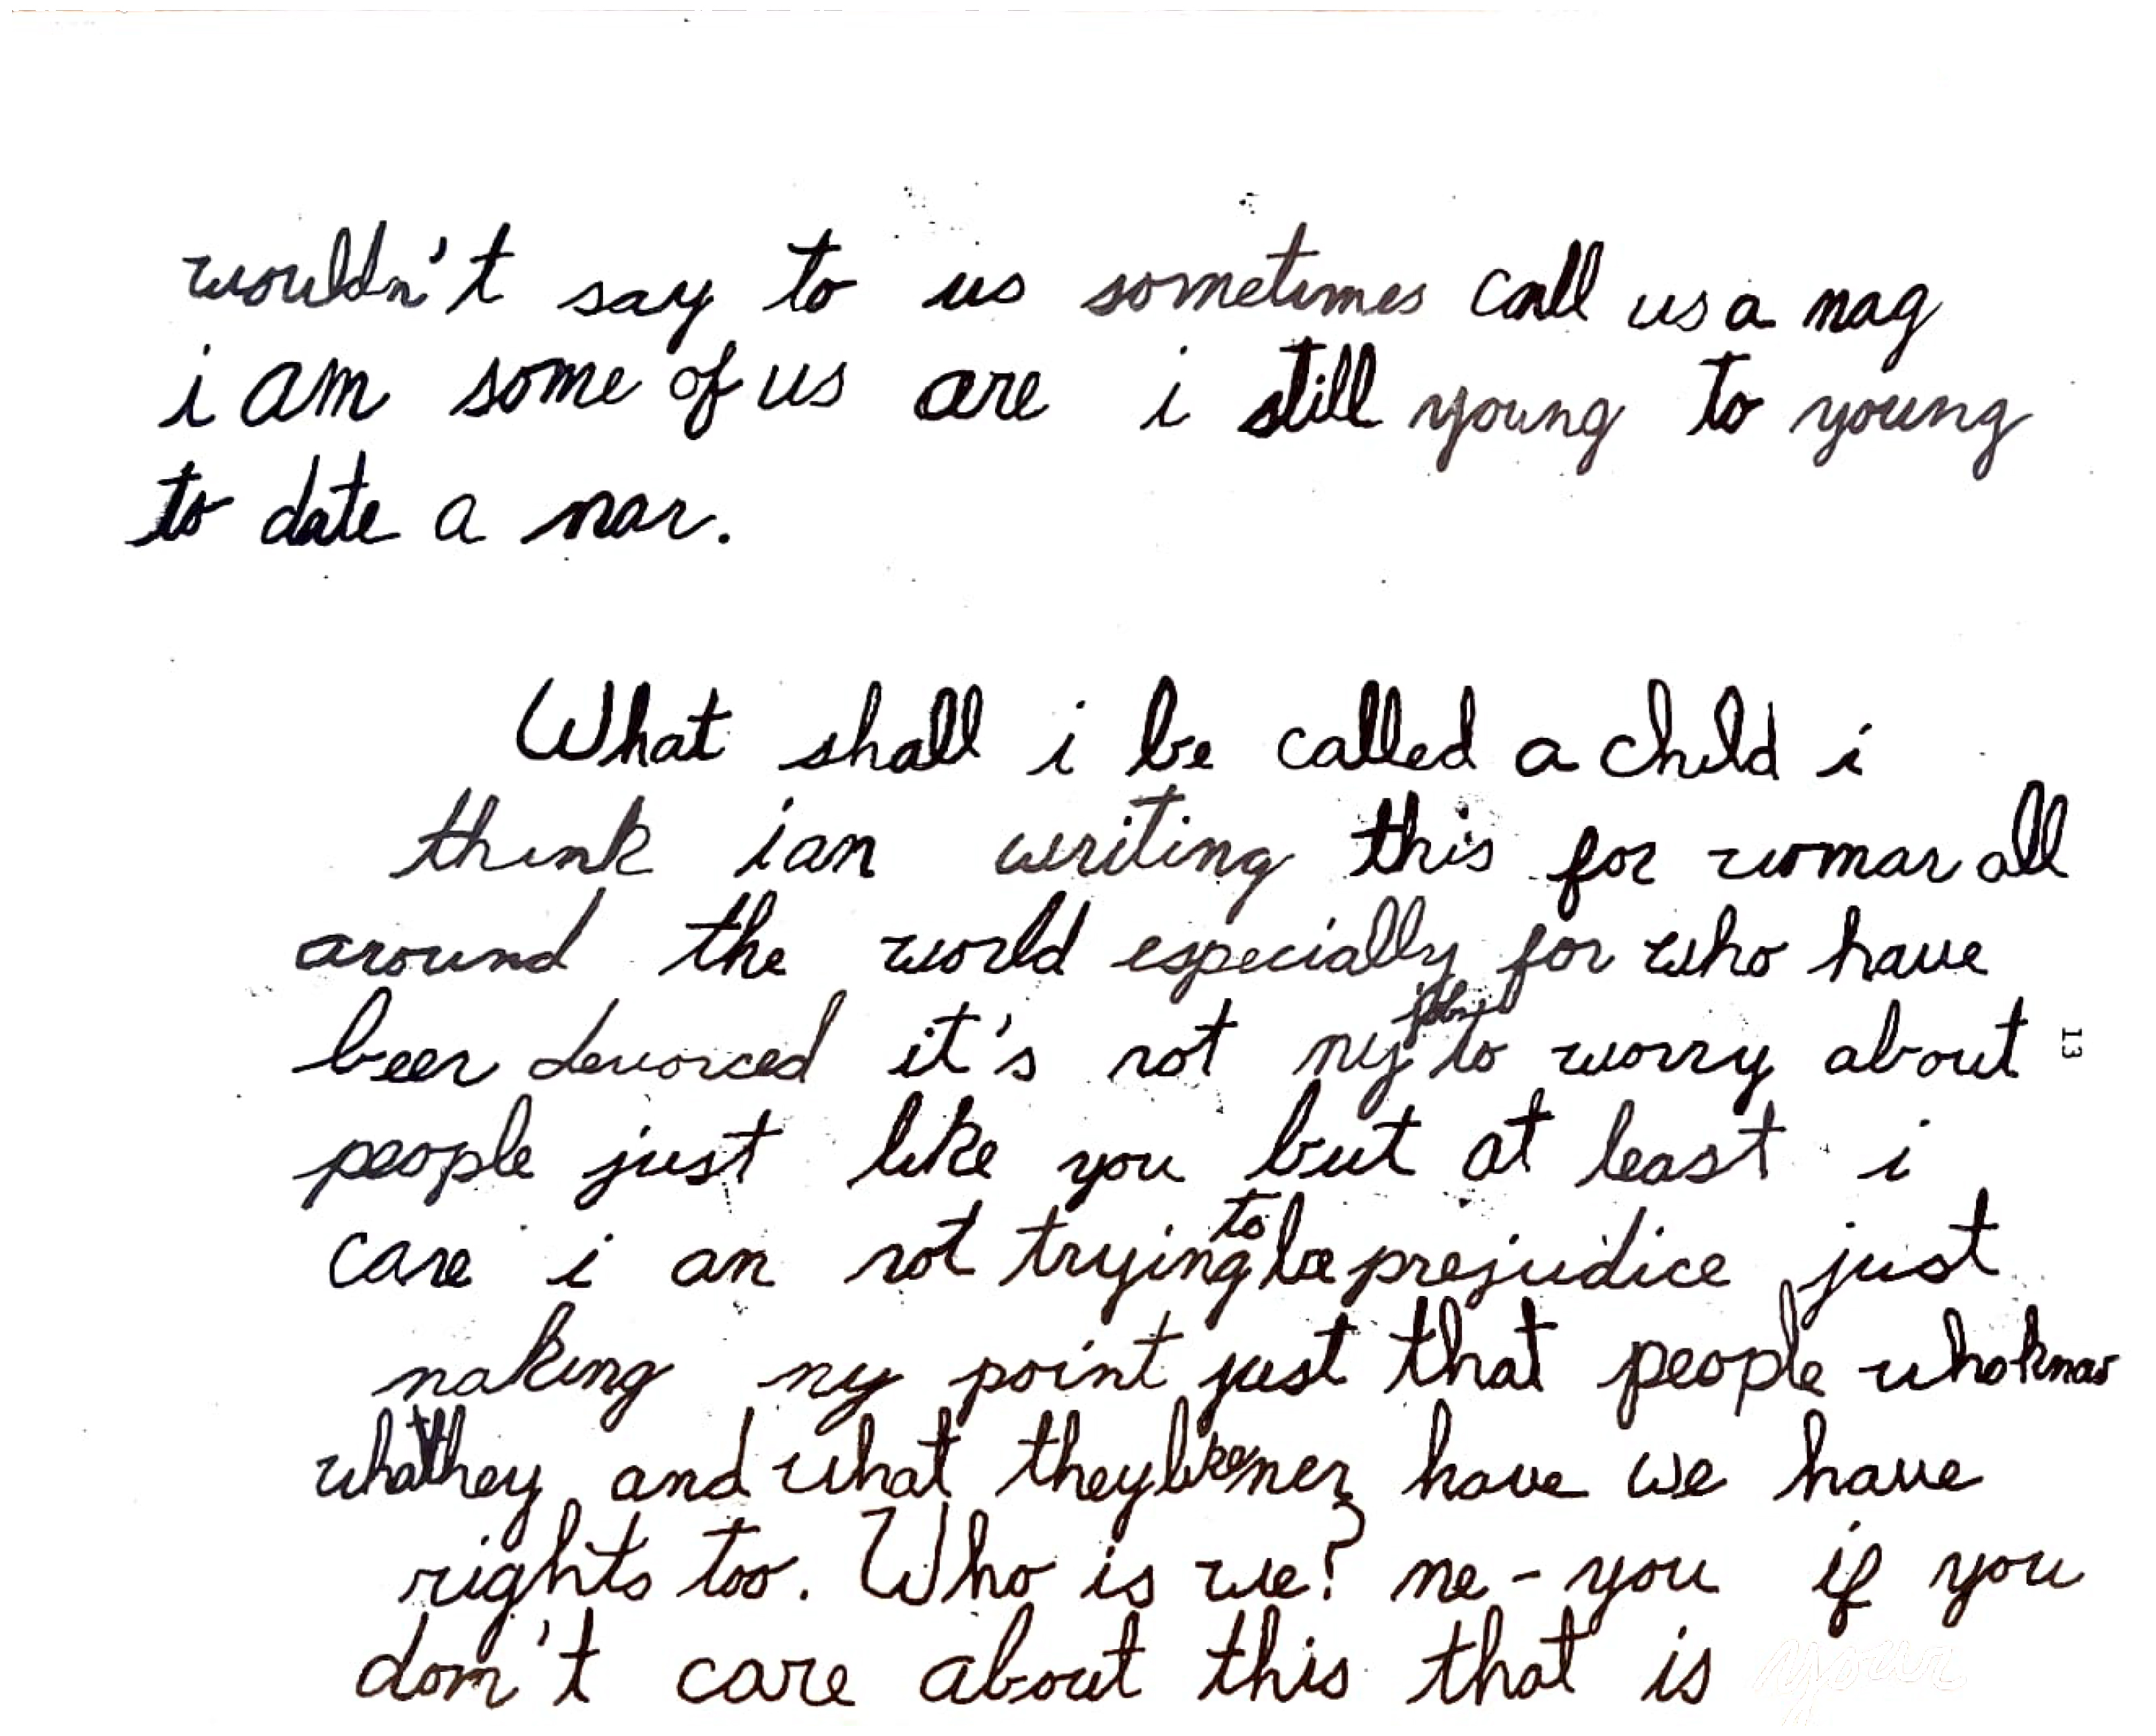 wouldn't say to us sometimes call us a nag
i am some of us are i still young to young
to date a man.
What shall i be called a child i
think i am writing this for woman all
around the world especially for who have
been devorced it's not my job to worry about
13
people just like you but at least i
care i am not trying to be prejudice just
making my point just that people who know
what they and what they like men have we have
rights too. Who is we? me - you if you
don't care about this that is your